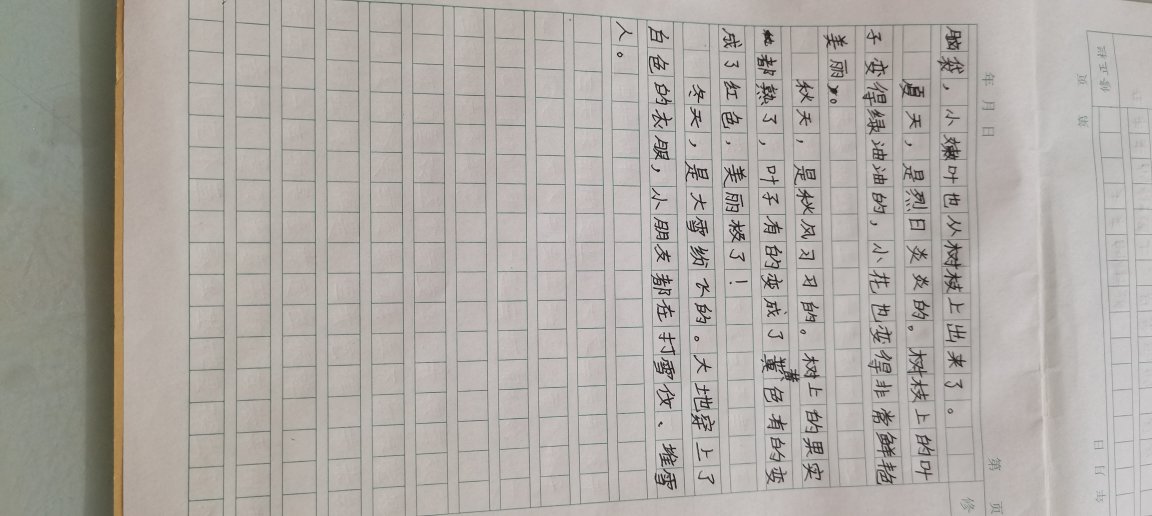 年 月 日
第 页
脑袋，小嫩叶也从树枝上出来了。
夏天，是烈日炎炎的。树枝上的叶
子变得绿油油的，小花也变得非常鲜艳
美丽。
秋天，是秋风习习的。树上的果实
都熟了，叶子有的变成了黄色有的变
成了红色，美丽极了！
冬天，是大雪纷飞的。大地穿上了
白色的衣服，小朋友都在打雪仗、堆雪
人。
修